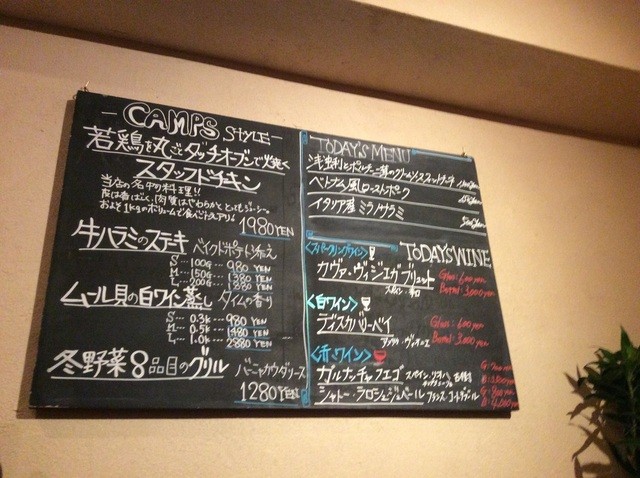 - CAMPS STYLE -
若鶏を丸ごとダッチオーブンで火焼く
スタッフドチキン
当店の名物料理!!
皮は香ばしく、肉質はやわらかく とってもジューシー。
およそ1kgのボリュームで食べごたえアリ♪
1980YEN
牛ハラミのステキ ベイクドポテト添え
S… 100g… 980 YEN
M… 150g… 1380 YEN
L… 200g… 1880 YEN
ムール貝の白ワイン蒸し タイムの香り
S… 0.3k… 980 YEN
M… 0.5k… 1480 YEN
L… 1.0k… 2880 YEN
冬野菜8品目のグリル バーニャカウダソース
1280YEN
TODAY'S MENU
浅利とポルチーニ茸のクリームソースフェットチーネ
ベトナム風ローストポーク
イタリア産 ミラノサラミ
<スパークリングワイン>
TODAY'S WINE
カヴァ・ヴィジェガブリュット
スペイン・辛口
Glass: 600yen
Bottol: 3,000yen
<白ワイン>
ディスカバリーベイ
Glass: 600yen
Bottol: 3,000yen
<赤・ワイン>
ガルナッチャ フエゴ スペイン
シャトー・ラロシュジュベール フランス・コートブール